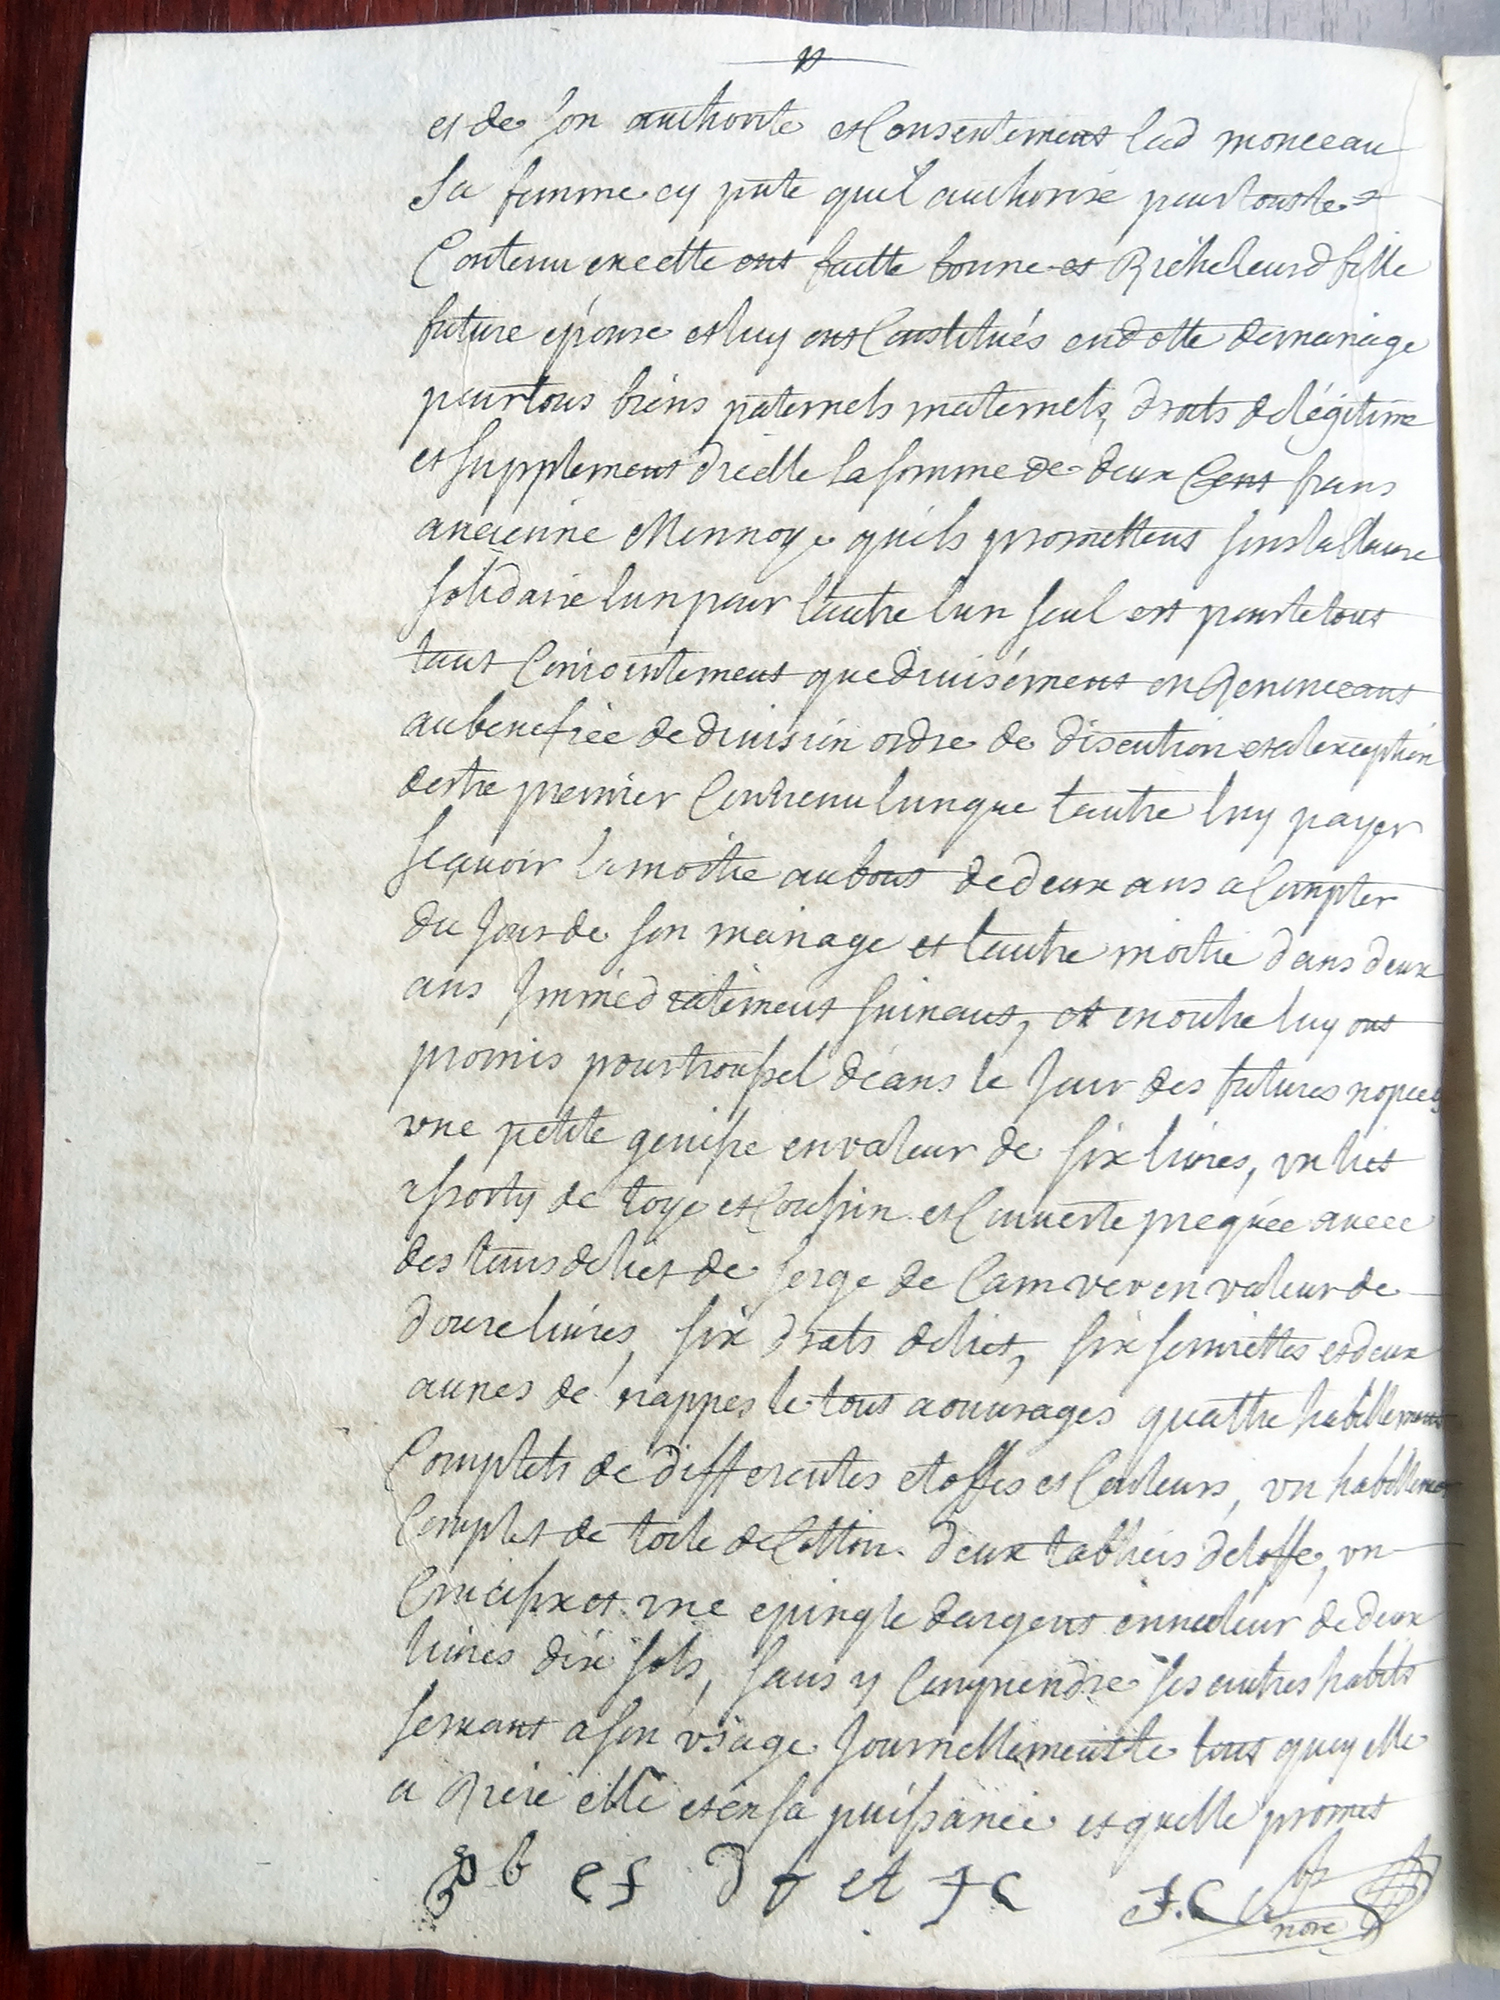 et de son authorite et Consentement lad monceau
Sa femme cy pnte quil authorise pour tout le
Contenu en cette ont faitte bonne et Riche leurd fille
future épouse et luy ont Constitués en dotte de mariage
pour tous biens paternels maternels, droits de légitime
et supplement dicelle la somme de deux Cent frans
ancienne Monnoye quils promettent sous la Clause
solidaire lun pour lautre lun seul et pour le tout
tant Conjointement que divisément en Renonceant
au benefice de division ordre de discution et a lexception
destre premier Contrenu lun que lautre luy payer
sçavoir la moitie au bout de deux ans a Compter
du Jour de son mariage et lautre moitie dans deux
ans Immédiatement suivant, et en outre luy ont
promis pour troussel déans le Jour des futures nopces
une petite genisse en valeur de six livres, un liet
assorty de toye et Coussin et Couverte avecc
des tours de liet de serge de Cam ver en valeur de
douze livres, six draps de liet, six serviettes et deux
aunes de nappes le tout a ouvrages quattre habillement
Complets de differentes etoffes et Couleurs, un habillement
Complet de toile de Cotton deux tabliers detoffe, un
Crucifix et une epingle dargent en valeur de deux
livres dix sols, sans y Comprendre ses autres habits
servant a son usage Journellement le tout quoy elle
a Riere elle et en sa puissance et quelle promet
b ef d o et f c f. C nore